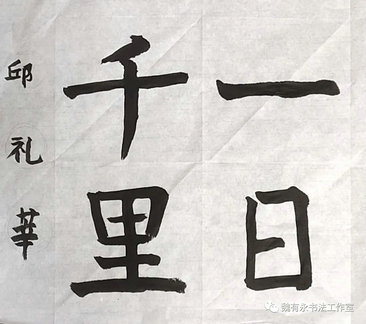 一日
千里
邱礼華
魏有永书法工作室